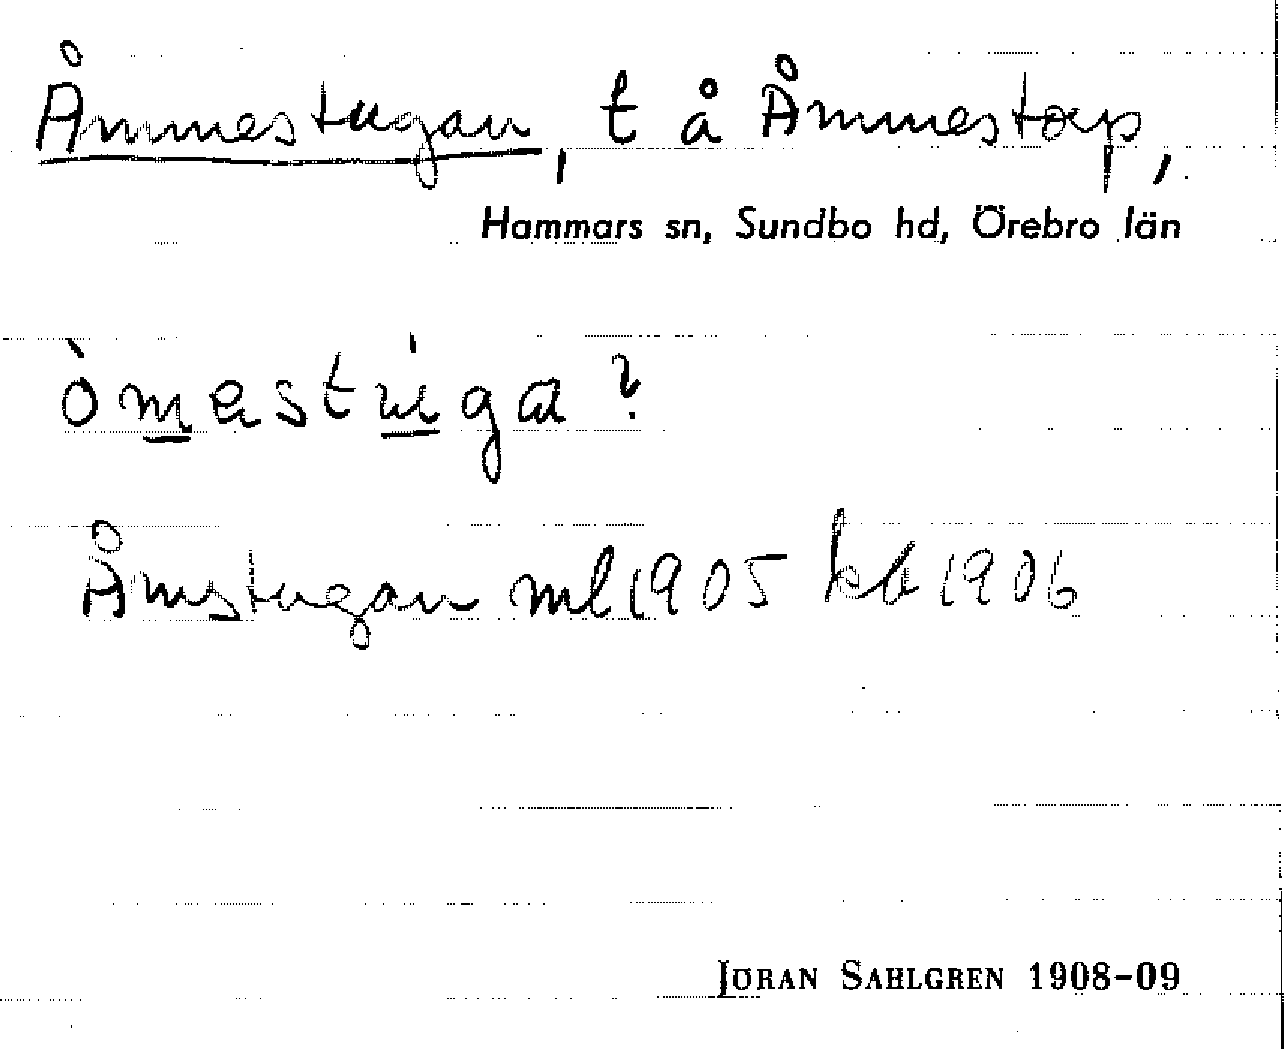 Åmmestugan, t å Åmmestorp,
Hammars sn, Sundbo hd, Örebro län
òmestúga?
Åmstugan ml 1905 kb 1906
JÖRAN SAHLGREN 1908-09